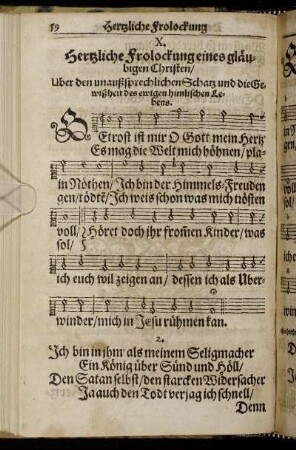 59 Hertzliche Frolockung
X.
Hertzliche Frolockung eines gläu-
bigen Christen/
Uber den unaußsprechlichen Schatz und die Ge-
wißheit des ewigen himlischen Le-
bens.
GEtrost ist mir O Gott mein Hertz
Es mag die Welt mich höhnen/ pla-
in Nöthen/ Ich bin der Himmels-Freuden
gen/ tödtē/ Ich weis schon was mich nösten
voll/ Höret doch ihr from̃en Kinder/ was
sol/
ich euch wil zeigen an/ dessen ich als Uber-
winder/ mich in Jesu rühmen kan.
2.
Ich bin in jhm als meinem Seligmacher
Ein König über Sünd und Höll/
Den Satan selbst/ den starcken Widersacher
Ja auch den Todt verjag ich schnell/
Denn